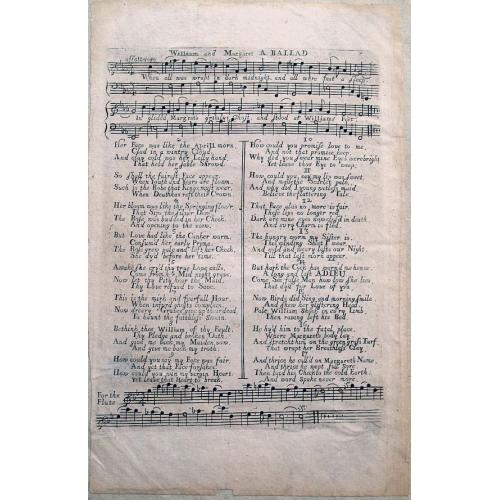 William and Margaret A BALLAD
affetuoso
When all was wrapt in dark midnight, and all were fast a sleep,
In glided Margrets grimly Ghost, and stood at Williams Feet.
2
Her Face was like the Aprill morn,
Clad in a wintry Cloud,
And clay cold was her Lilly hand,
That held her Sable Shrowd.
3
So shall the fairest Face appear,
When Youth and Years are flown,
Such is the Robe that Kings must wear,
When Death has reft their Crown.
4
Her bloom was like the Springing flow'r,
That Sips the Silver Dew
The Rose was budded in her Cheek,
And opening to the view.
5
But Love had like the Canker worm,
Consum'd her early Prime,
The Rose grew pale and left her Cheek,
She dy'd before her time.
6
Awake she cry'd thy true Love calls,
Come from her Mid night grave,
Now let thy Pity hear the Maid,
Thy Love refus'd to Save.
7
This is the mirk and fearfull Hour,
When injur'd ghosts complain,
Now dreary Graves give up their dead
To haunt the faithless Swain.
8
Bethink thee William of thy Fault,
Thy Pledge and broken Oath,
And give me back my Maiden vow,
And give me back my troth.
9
How could you say my Face was fair,
And yet that Face forsake,
How could you win my virgin Heart,
Yet leave that Heart to break.
10
How could you promise Love to me,
And not that promise keep,
Why did you swear mine Eyes were bright
Yet leave those Eyes to weep.
11
How could you say my lip was sweet,
And made the Scarlet pale,
And why did I young witless maid,
Believe the flattering Tale.
12
That Face alas no more is fair,
These lips no longer red,
Dark are mine eyes now clos'd in death,
And every Charm is fled.
13
The hungry worm my Sister is,
This winding Sheet I wear,
And cold and weary lasts our Night,
Till that last morn appear.
14
But hark the Cock has warn'd me hence,
A long and last ADIEU
Come See false Man how low she lies,
That dy'd for Love of you.
15
Now Birds did Sing, and morning smile
And shew her glittering Head,
Pale William Shook in ev'ry Limb,
Then raving left his Bed.
16
He hy'd him to the fatal place,
Where Margarets body lay,
And stretch'd him on the green grass Turf,
That wrapt her Breathless Clay.
17
And thrice he call'd on Margarets Name,
And thrice he wept full Sore
Then laid his Cheek to the cold Earth,
And word Spoke never more.
For the
Flute